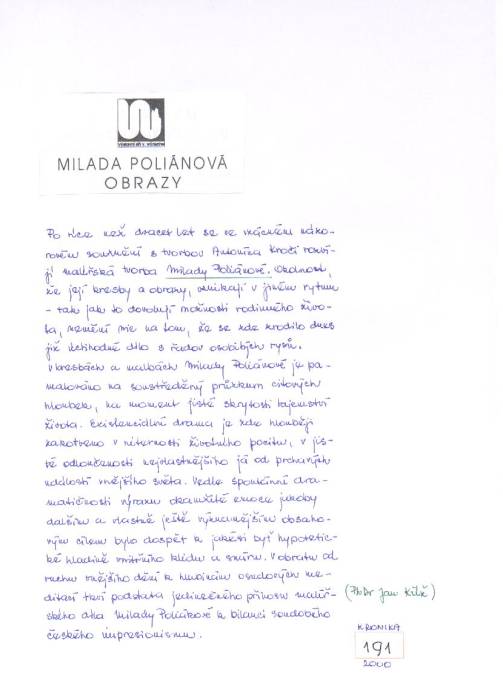 MILADA POLIÁNOVÁ
OBRAZY
Po více než dvacet let se ve vzácném názo-
rovém souznění s tvorbou Antonína Kroči rozví-
jí malířská tvorba Milady Poliánové. Okolnost,
že její kresby a obrazy vznikají v jiném rytmu
- tak jak to dovolují možnosti rodinného živo-
ta, nemění nic na tom, že se zde zrodilo dnes
již úctihodné dílo s řadou osobitých rysů.
V kresbách a malbách Milady Poliánové je pa-
matováno na soustředěný průzkum citových
hloubek, na moment jisté skrytosti tajemství
života. Existenciální drama je zde hlouběji
zakotveno v niternosti životního pocitu, v jis-
té odloučenosti nejvlastnějšího já od prchavých
událostí vnějšího světa. Vedle spontánní dra-
matičnosti výrazu okamžité emoce jakoby
dalším a vlastně ještě významnějším obsaho-
vým cílem bylo dospět k jakési byť hypotetic-
ké hladině vnitřního klidu a smíru. V obratu od
ruchu vnějšího dění k hlubinám osudových me-
ditací tkví podstata jedinečného přínosu malíř-
ského díla Milady Poliánové k bilanci soudobého
českého impresionismu.
(PhDr Jan
KRONIKA
191
2000